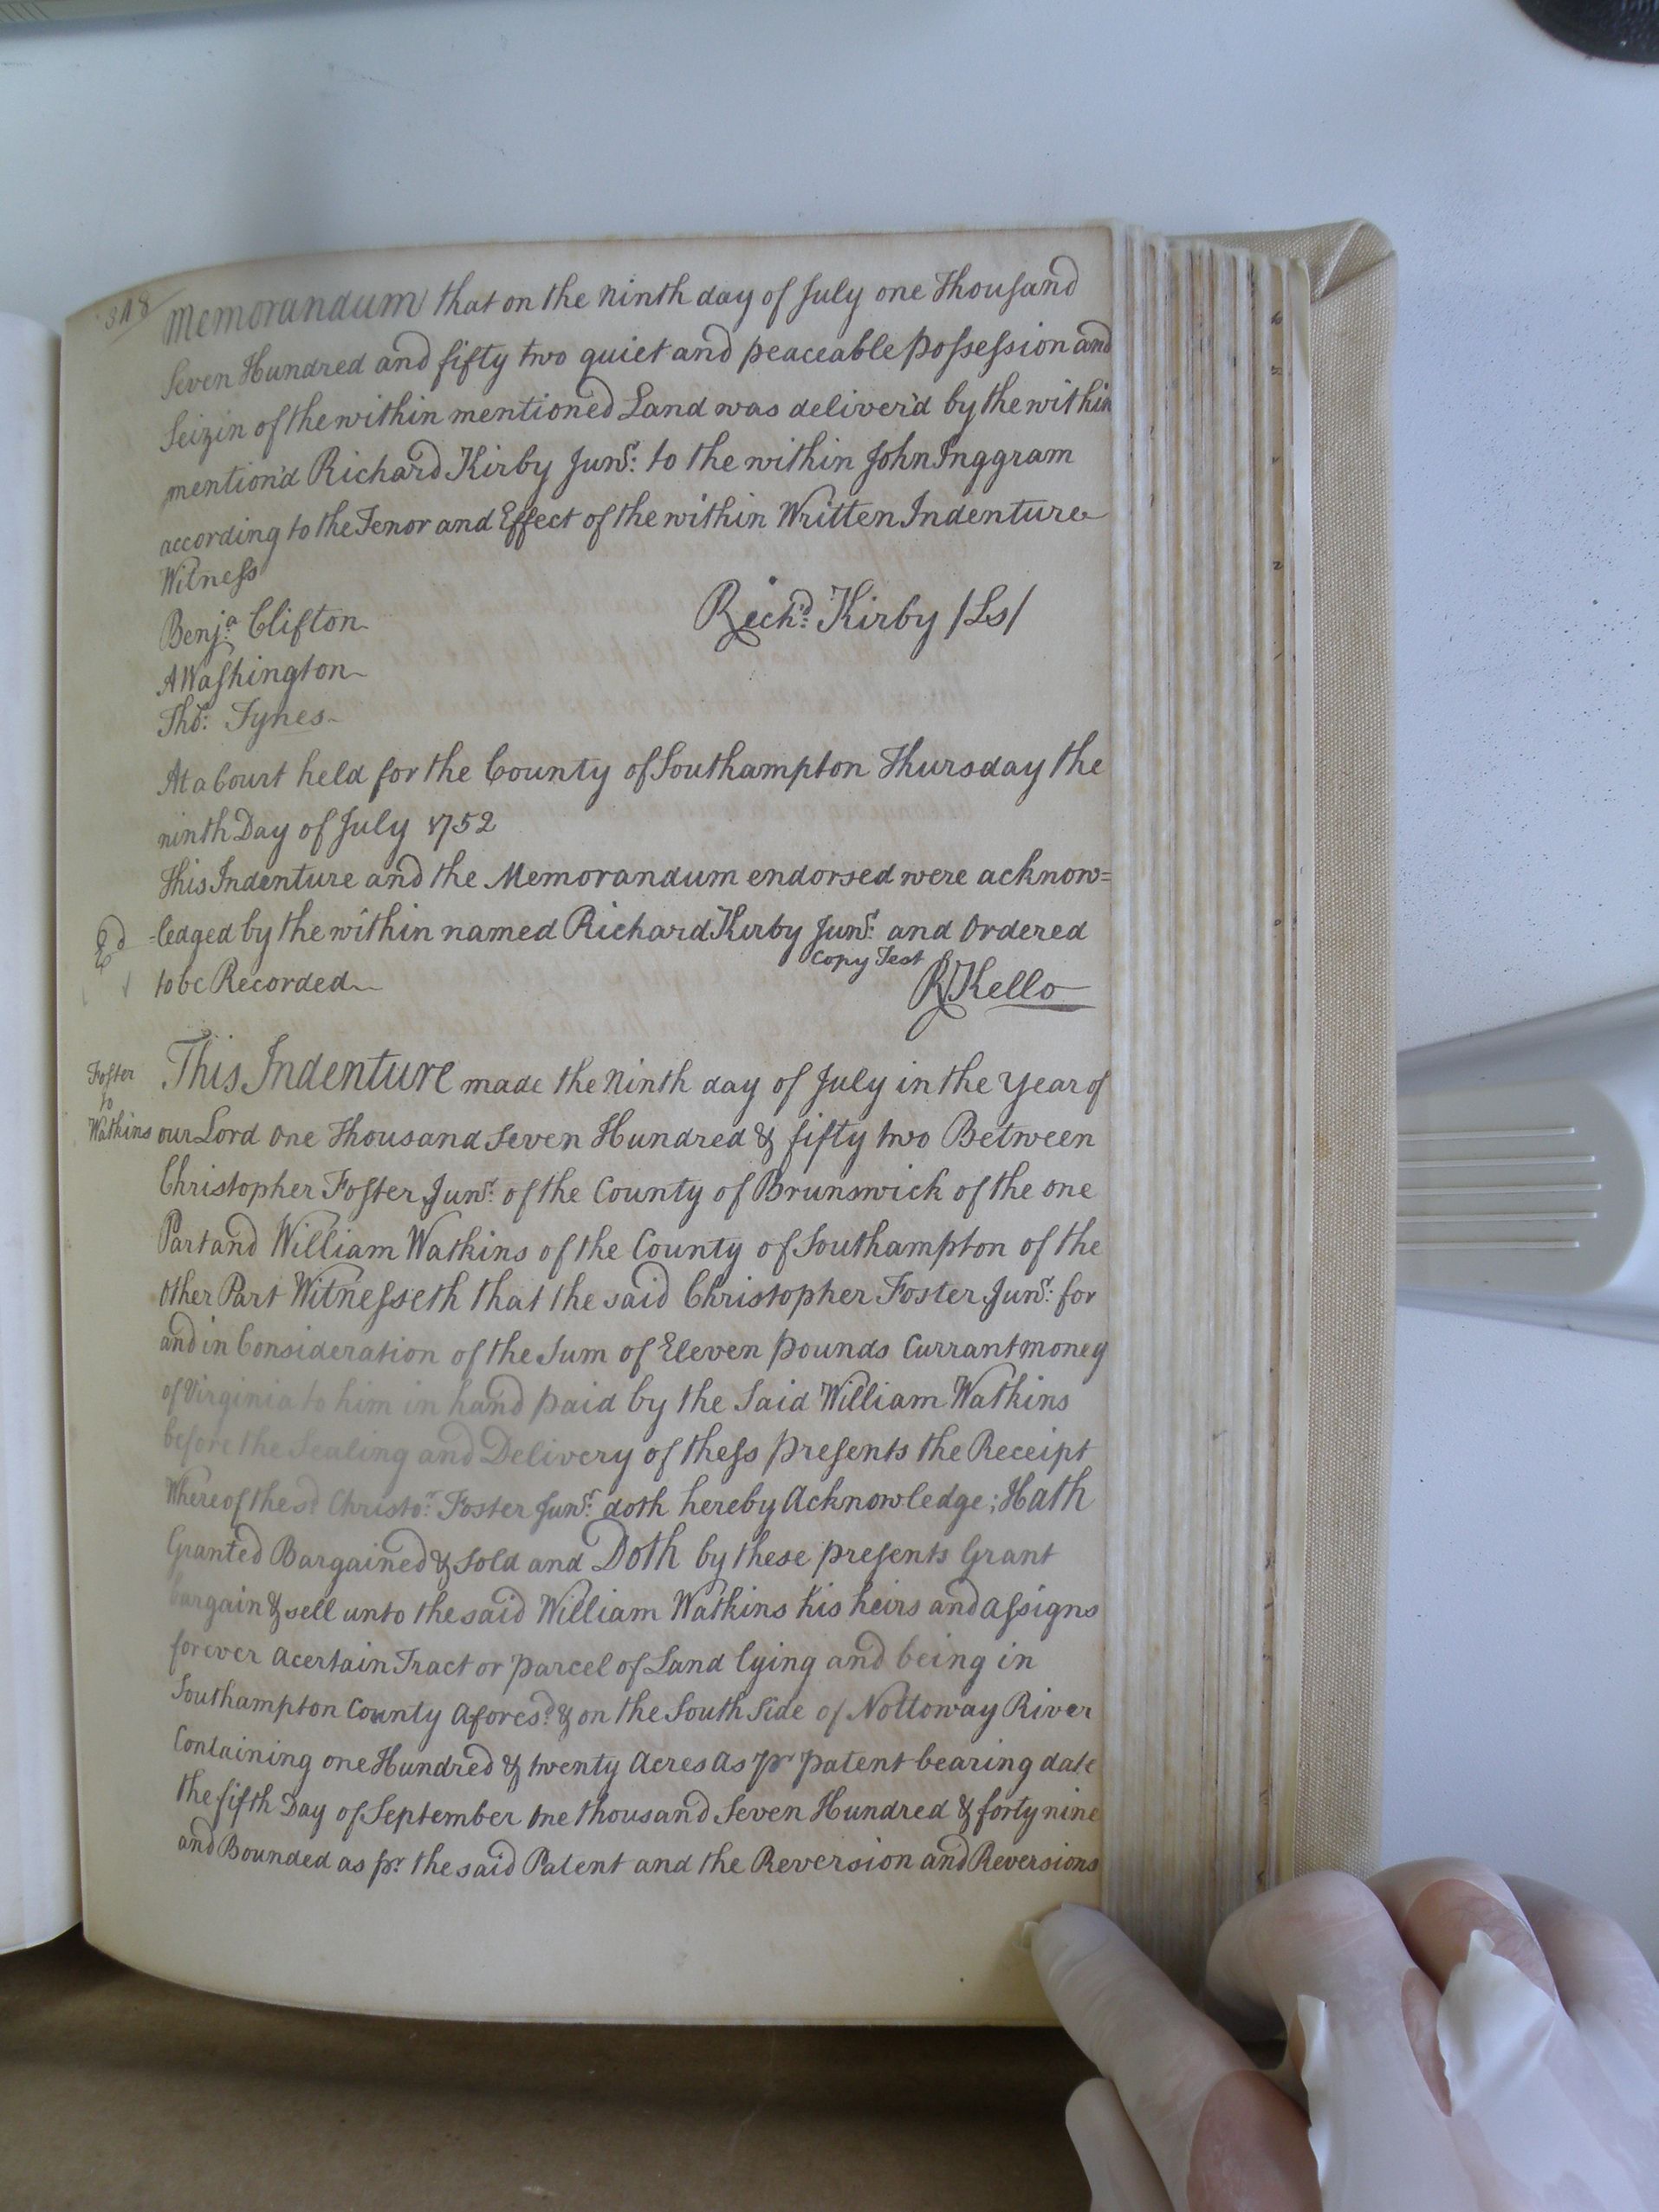 348
Memorandum that on the Ninth day of July one Thousand
Seven Hundred and fifty two quiet and peaceable Possession and
Seizin of the within mentioned Land was deliver'd by the within
mention'd Richard Kirby Junr: to the within John Inggram
according to the Tenor and Effect of the within Written Indenture
Witness
Benja: Clifton
Richd: Kirby /Ls/
AWashington
Tho: Tynes
At a Court held for the County of Southampton Thursday the
ninth Day of July 1752
This Indenture and the Memorandum endorsed were acknow=
=ledged by the within named Richard Kirby Junr: and Ordered
to be Recorded
Copy Test
RKello
Foster
to
Watkins
This Indenture made the Ninth day of July in the Year of
our Lord One Thousand Seven Hundred & fifty two Between
Christopher Foster Junr: of the County of Brunswick of the one
Part and William Watkins of the County of Southampton of the
Other Part Witnesseth that the said Christopher Foster Junr: for
and in Consideration of the Sum of Eleven Pounds Currant money
of Virginia to him in hand paid by the Said William Watkins
before the Sealing and Delivery of thess Presents the Receipt
Whereof the sd: Christor: Foster Junr: doth hereby Acknowledge; Hath
Granted Bargained & Sold and Doth by these presents Grant
bargain & sell unto the said William Watkins his heirs and assigns
forever a certain Tract or parcel of Land lying and being in
Southampton County Aforesd: & on the South Side of Nottoway River
Containing one Hundred & twenty Acres as pr patent bearing date
the fifth Day of September One thousand Seven Hundred & forty nine
and Bounded as pr. the said Patent and the Reversion and Reversions